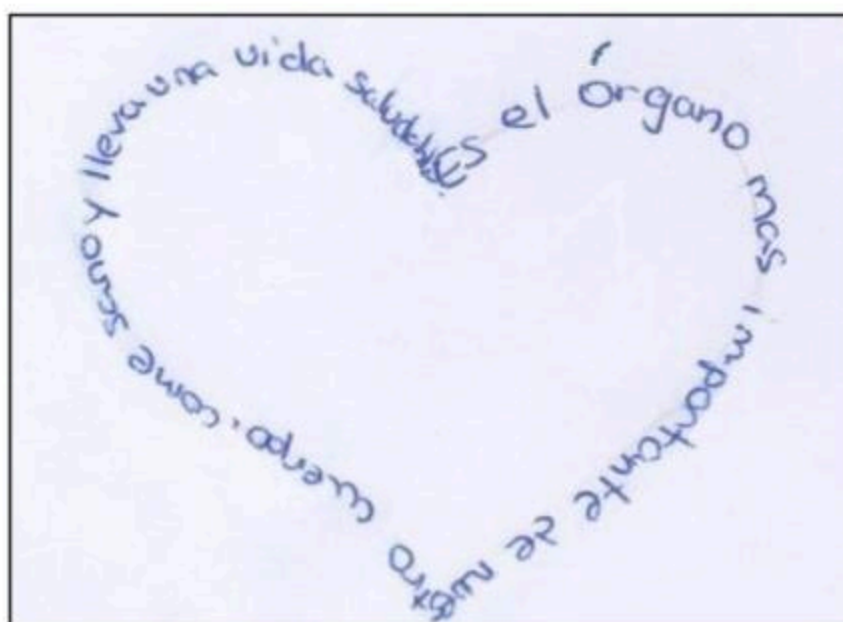 Es el órgano mas importante de nuestro cuerpo, come sano y lleva una vida saludable.